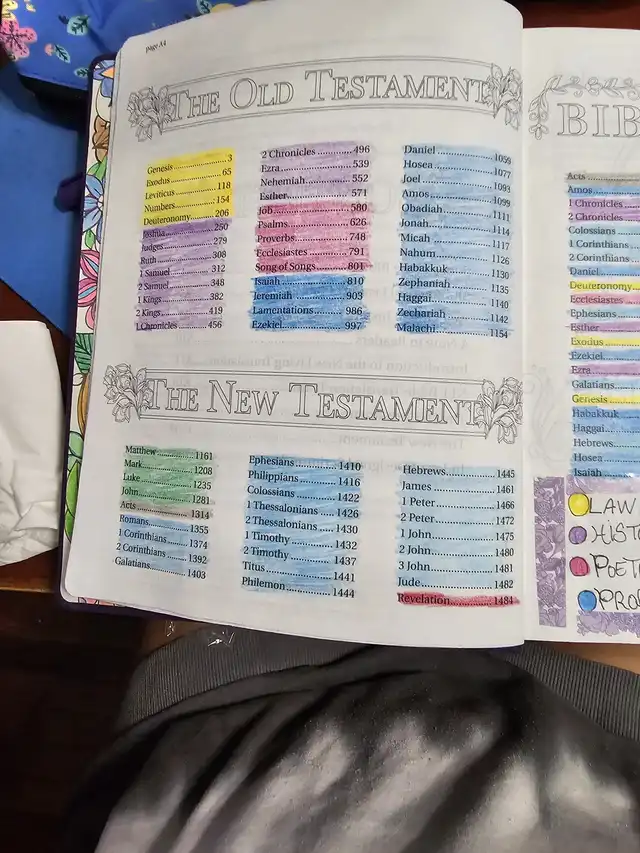 page A4
THE OLD TESTAMENT
Genesis ............ 3
Exodus ............ 65
Leviticus ............ 118
Numbers ............ 154
Deuteronomy ............ 206
Joshua ............ 250
Judges ............ 279
Ruth ............ 308
1 Samuel ............ 312
2 Samuel ............ 348
1 Kings ............ 382
2 Kings ............ 419
1 Chronicles ............ 456
2 Chronicles ............ 496
Ezra ............ 539
Nehemiah ............ 552
Esther ............ 571
Job ............ 580
Psalms ............ 626
Proverbs ............ 748
Ecclesiastes ............ 791
Song of Songs ............ 801
Isaiah ............ 810
Jeremiah ............ 903
Lamentations ............ 986
Ezekiel ............ 997
Daniel ............ 1059
Hosea ............ 1077
Joel ............ 1093
Amos ............ 1099
Obadiah ............ 1111
Jonah ............ 1114
Micah ............ 1117
Nahum ............ 1126
Habakkuk ............ 1130
Zephaniah ............ 1135
Haggai ............ 1140
Zechariah ............ 1142
Malachi ............ 1154
THE NEW TESTAMENT
Matthew ............ 1161
Mark ............ 1208
Luke ............ 1235
John ............ 1281
Acts ............ 1314
Romans ............ 1355
1 Corinthians ............ 1374
2 Corinthians ............ 1392
Galatians ............ 1403
Ephesians ............ 1410
Philippians ............ 1416
Colossians ............ 1422
1 Thessalonians ............ 1426
2 Thessalonians ............ 1430
1 Timothy ............ 1432
2 Timothy ............ 1437
Titus ............ 1441
Philemon ............ 1444
Hebrews ............ 1445
James ............ 1461
1 Peter ............ 1466
2 Peter ............ 1472
1 John ............ 1475
2 John ............ 1480
3 John ............ 1481
Jude ............ 1482
Revelation ............ 1484
BIB
Acts
Amos
1 Chronicles
2 Chronicles
Colossians
1 Corinthians
2 Corinthians
Daniel
Deuteronomy
Ecclesiastes
Ephesians
Esther
Exodus
Ezekiel
Ezra
Galatians
Genesis
Habakkuk
Haggai
Hebrews
Hosea
Isaiah
LAW
HISTO
POET
PROP